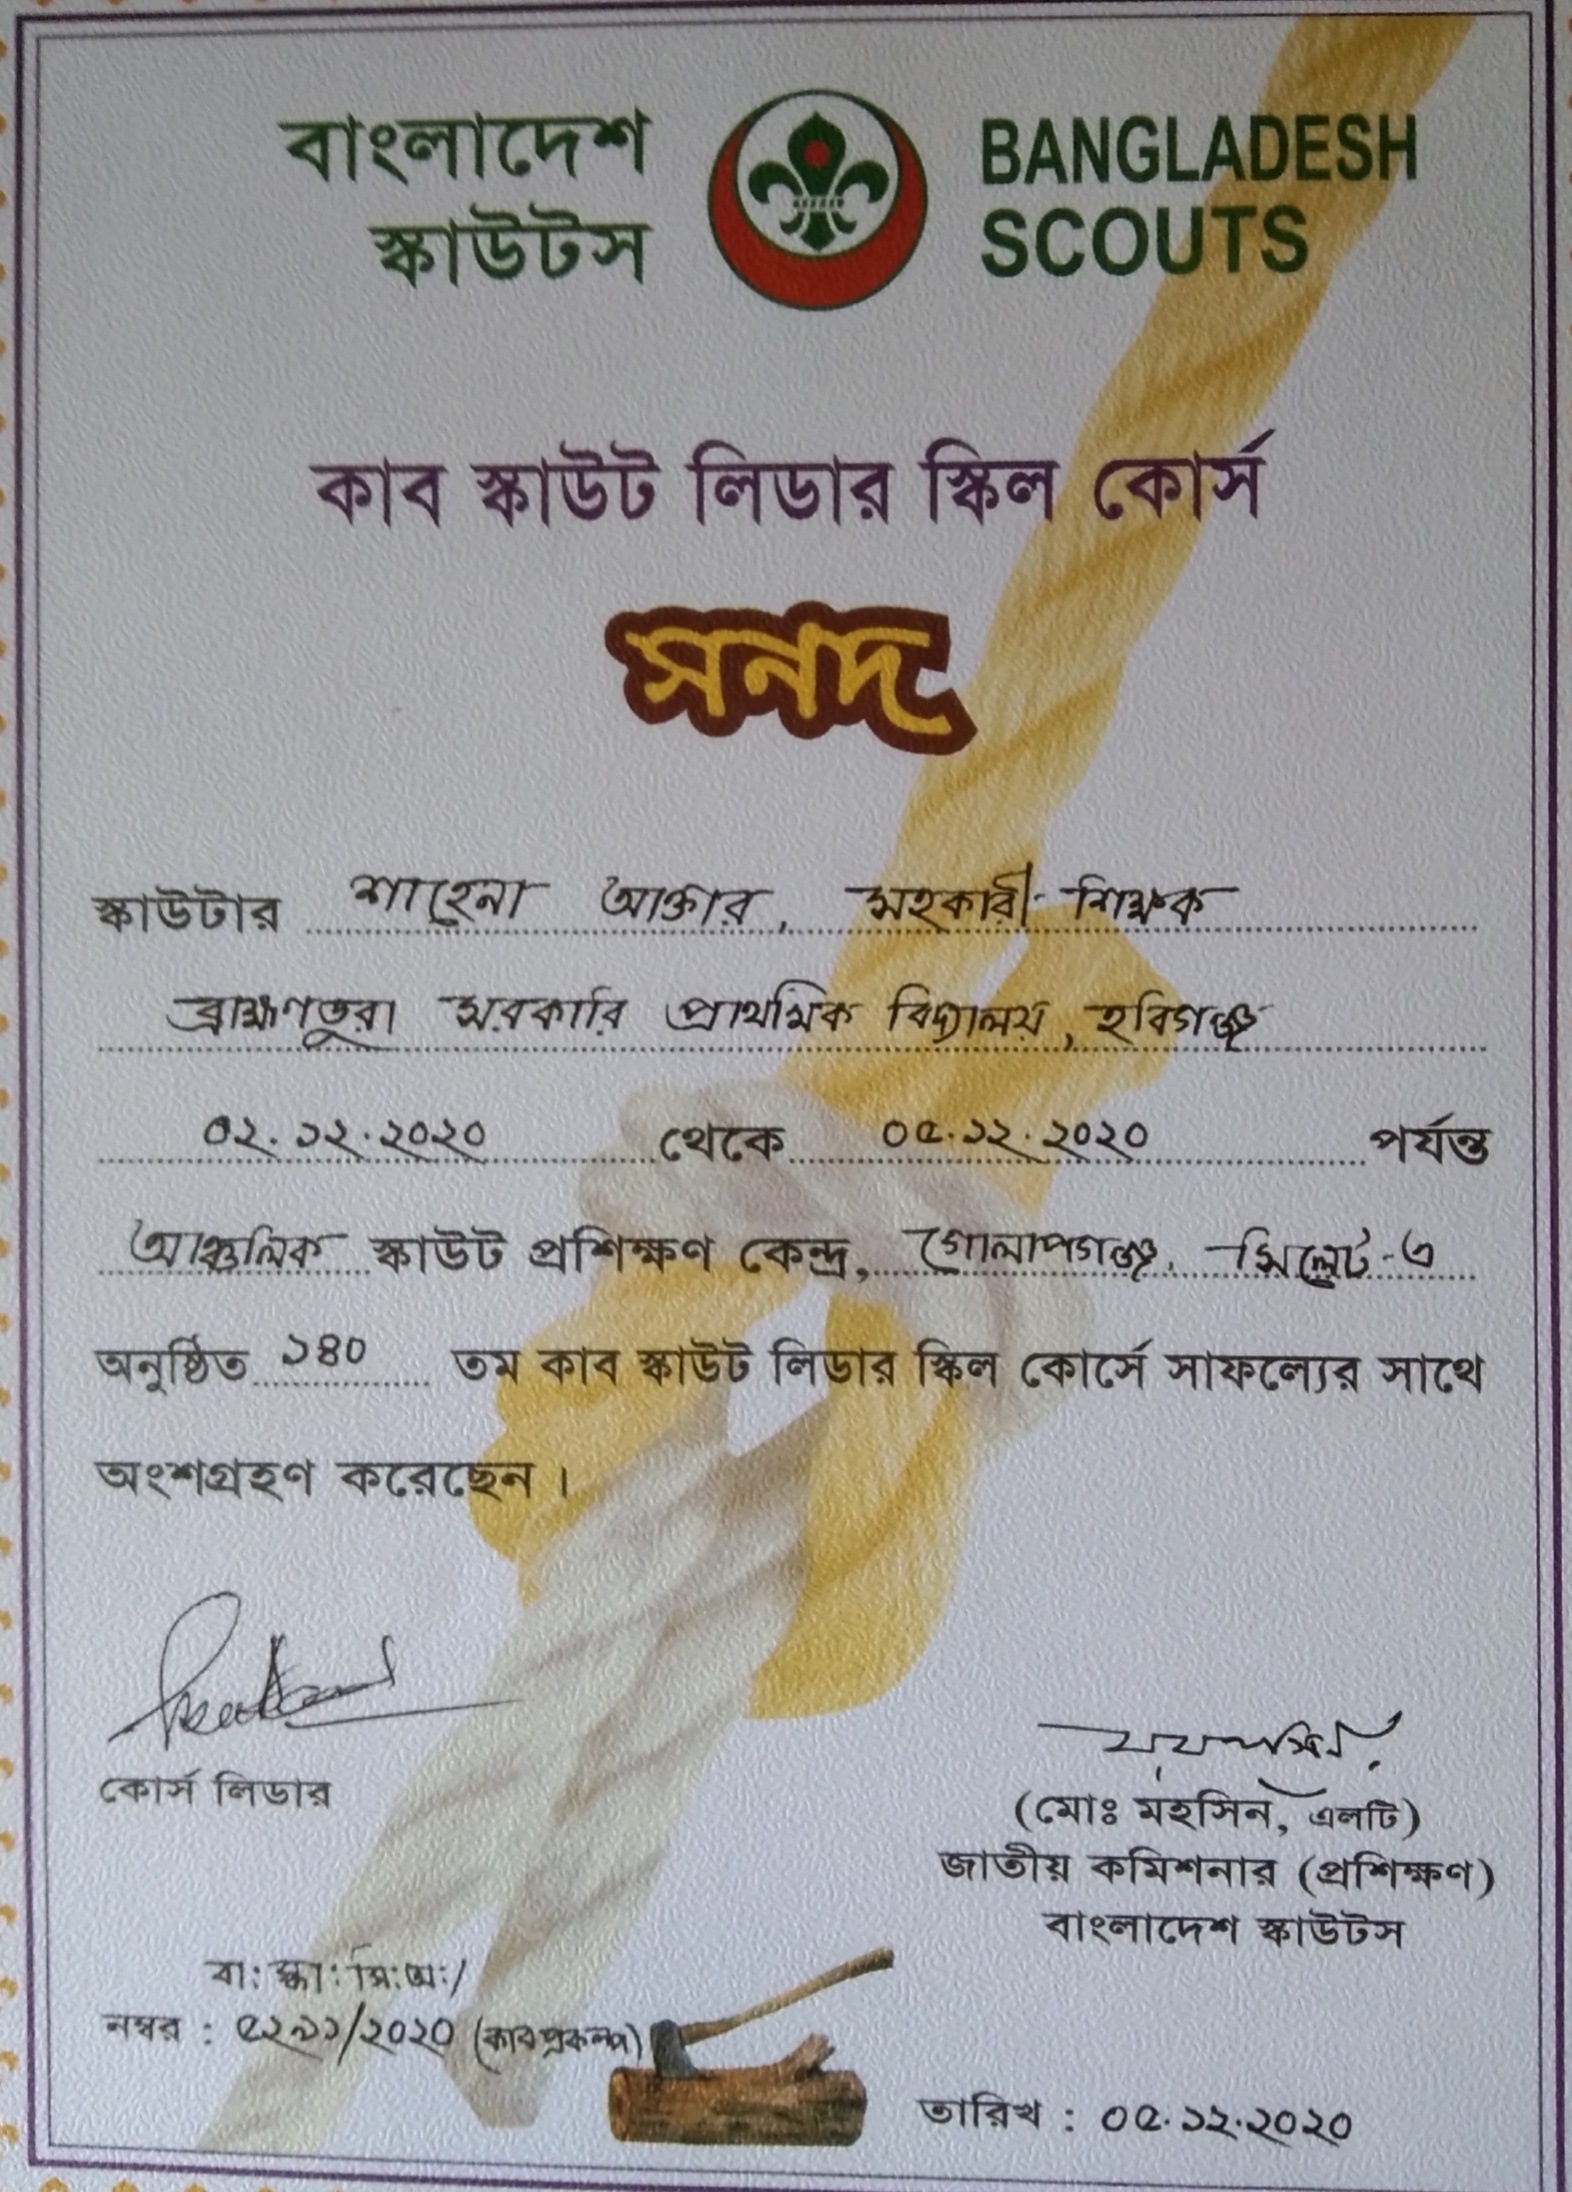 বাংলাদেশ
স্কাউটস
BANGLADESH
SCOUTS
কাব স্কাউট লিডার স্কিল কোর্স
সনদ
স্কাউটার শাহেনা আক্তার, সহকারী শিক্ষক
ব্রাহ্মণডুরা সরকারি প্রাথমিক বিদ্যালয়, হবিগঞ্জ
০২.১২.২০২০ থেকে ০৫.১২.২০২০ পর্যন্ত
আঞ্চলিক স্কাউট প্রশিক্ষণ কেন্দ্র, গোলাপগঞ্জ, সিলেট-এ
অনুষ্ঠিত ১৪০ তম কাব স্কাউট লিডার স্কিল কোর্সে সাফল্যের সাথে
অংশগ্রহণ করেছেন।
কোর্স লিডার
(মোঃ মহসিন, এলটি)
জাতীয় কমিশনার (প্রশিক্ষণ)
বাংলাদেশ স্কাউটস
বা: স্কা: সি:অ:/
নম্বর : ৫২৯১/২০২০ (কাব প্রকল্প)
তারিখ : ০৫.১২.২০২০